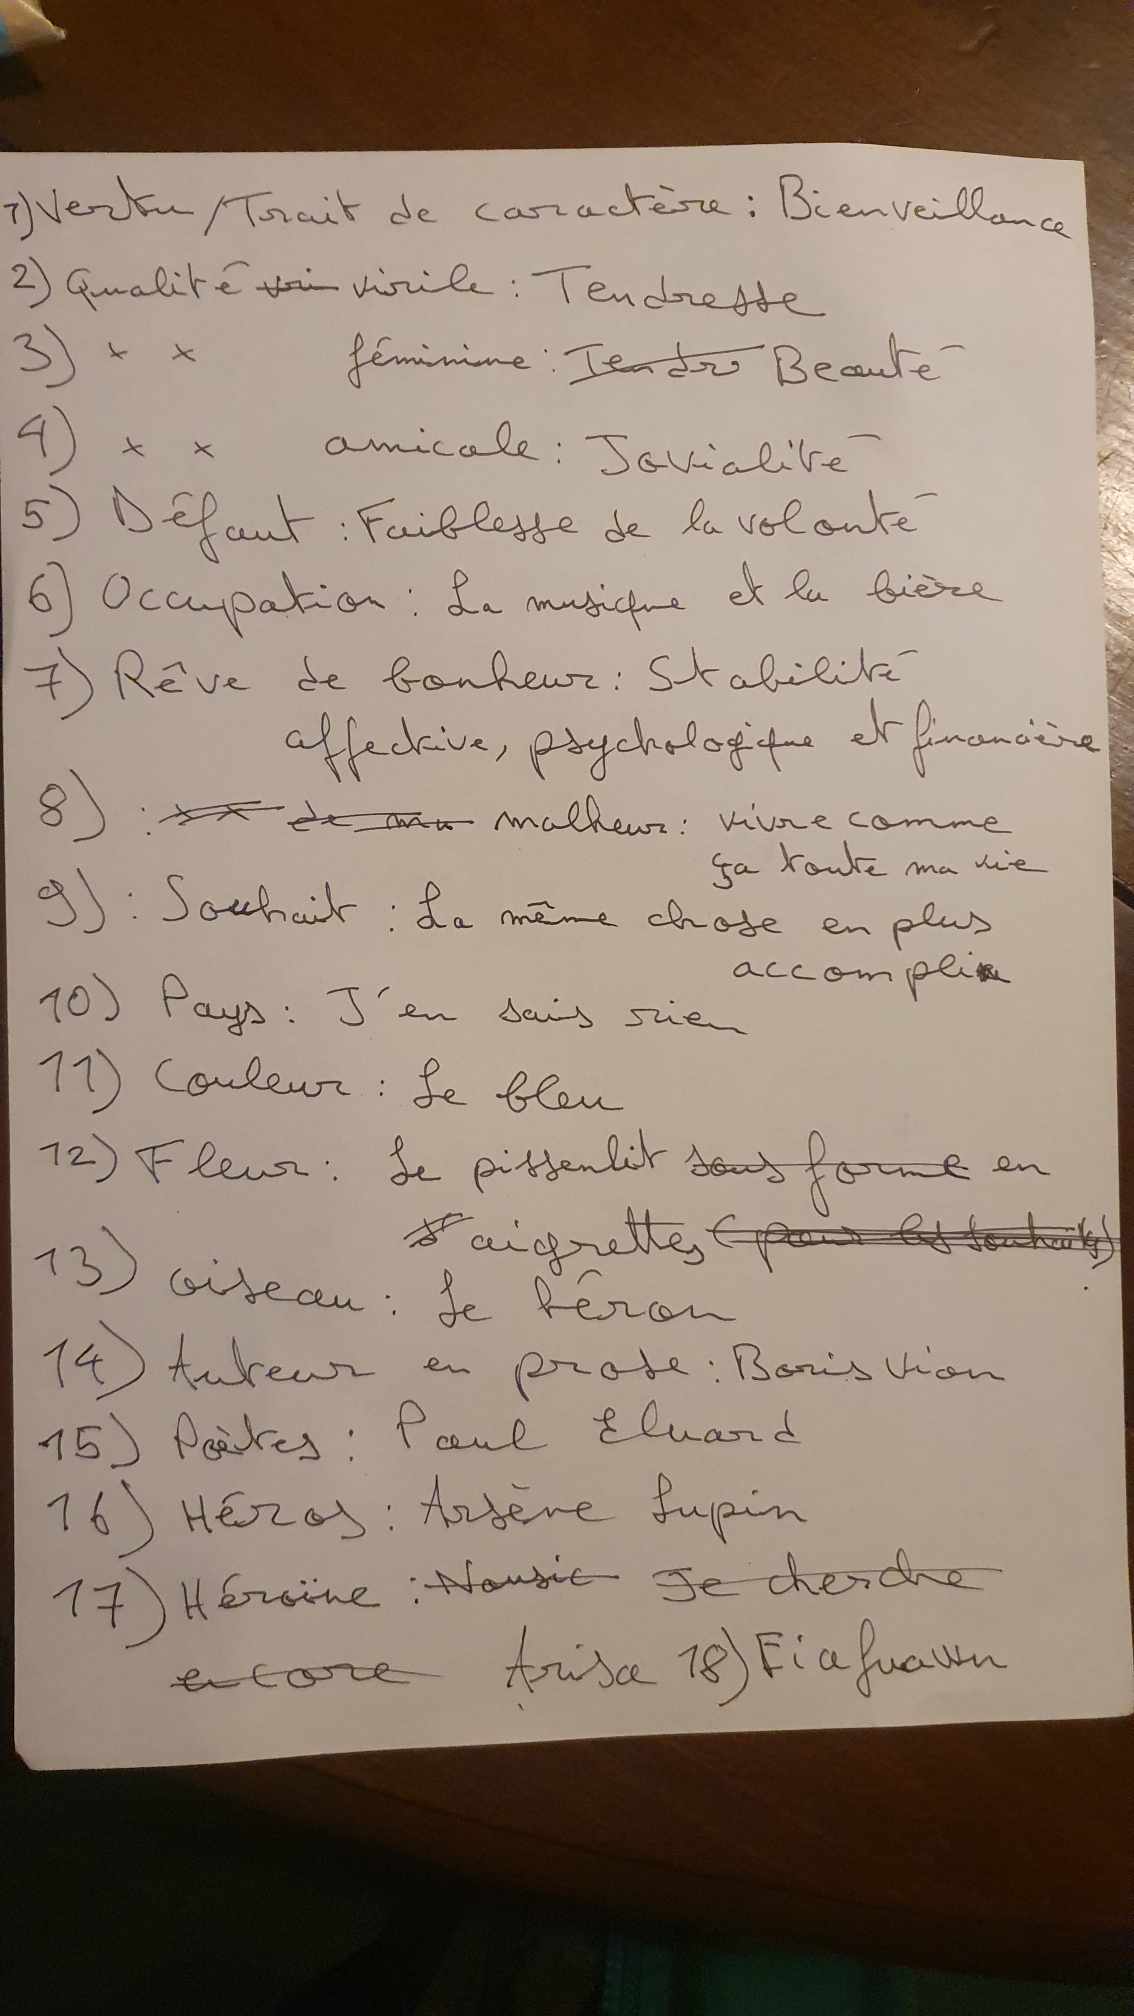 1) Vertu / Trait de caractère : Bienveillance
2) Qualité vri virile : Tendresse
3) x x féminine : Tendr Beauté
4) x x amicale : Jovialité
5) Défaut : Faiblesse de la volonté
6) Occupation : La musique et la bière
7) Rêve de bonheur : Stabilité
affective, psychologique et financière
8) : x x de mu malheur : vivre comme
ça toute ma vie
9) : Souhait : La même chose en plus
accompli
10) Pays : J'en sais rien
11) Couleur : Le bleu
12) Fleur : Le pissenlit sous forme en
d'aigrettes (pour les souhaits)
13) oiseau : Le héron
14) Auteur en prose : Boris Vian
15) Poètes : Paul Eluard
16) Héros : Arsène Lupin
17) Héroïne : Je cherche
encore Arisa 18)